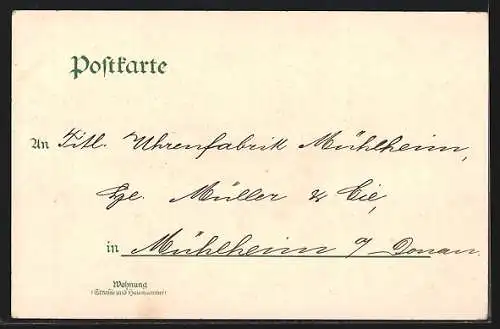 Postkarte
An Titl. Uhrenfabrik Mühlheim,
Hr. Müller & Cie,
in Mühlheim a/ Donau.
Wohnung
(Strasse und Hausnummer)